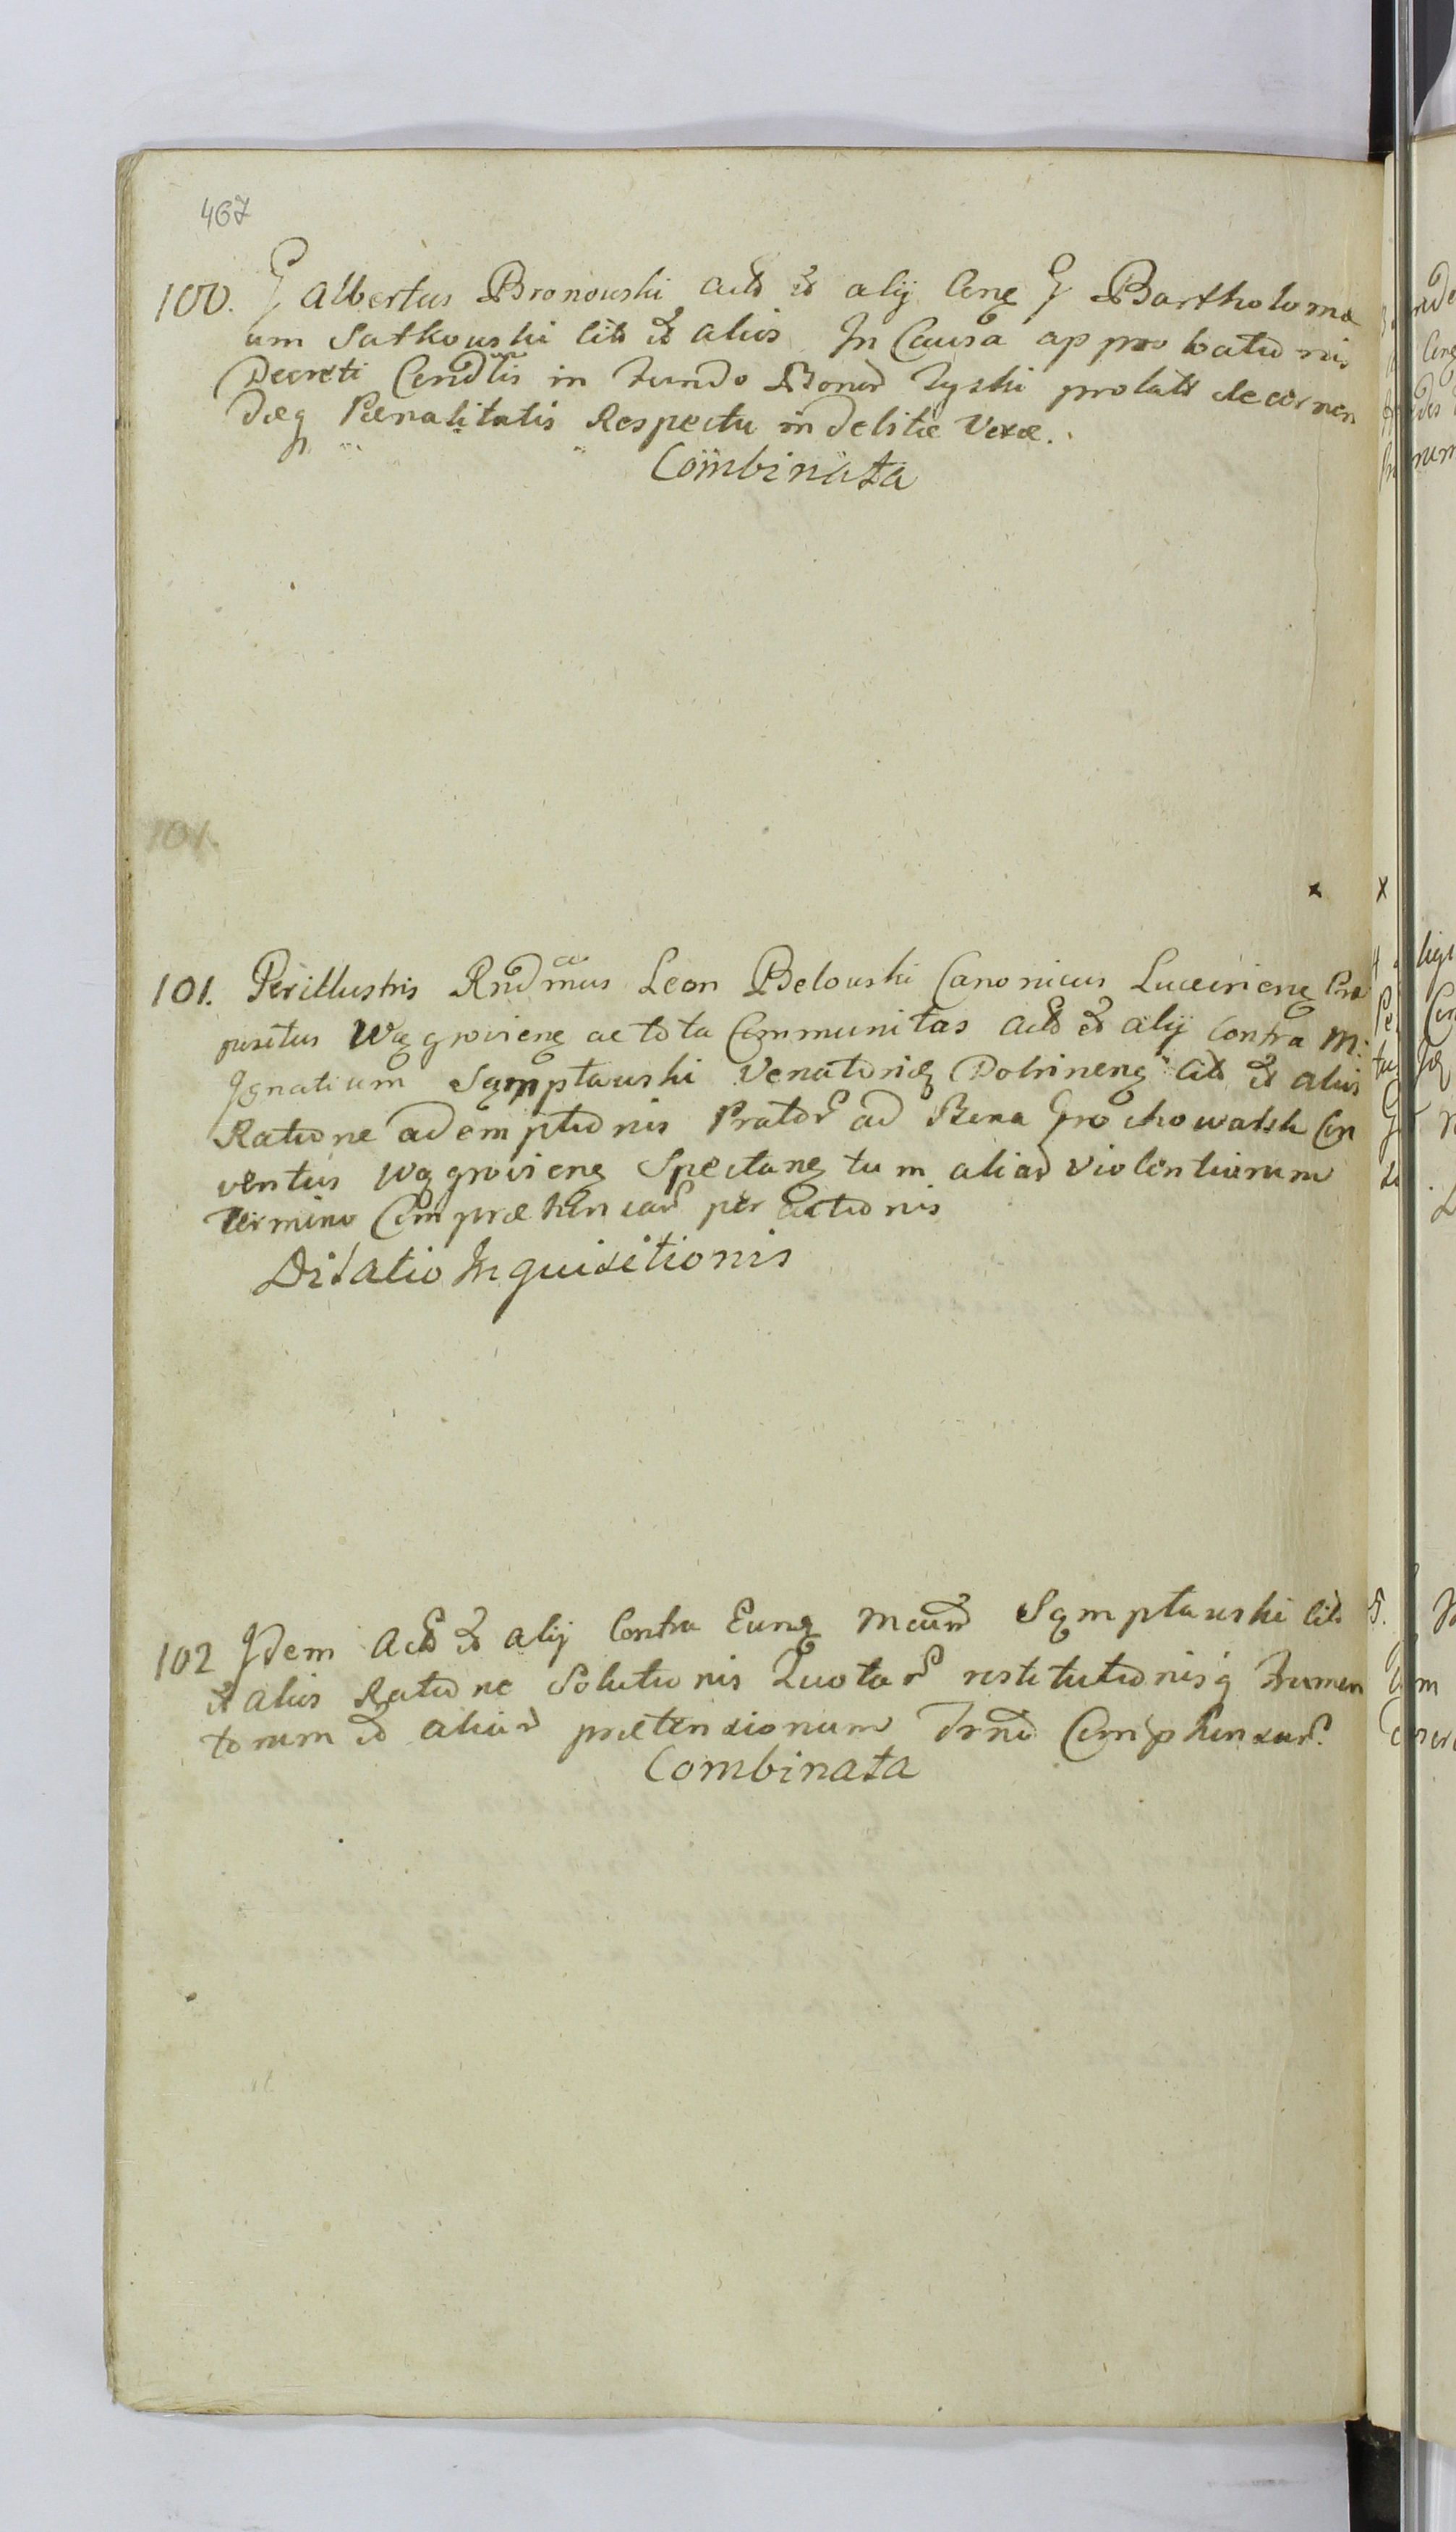 467
100. G Albertus Bronowski Actō et alij Cong G Bartholomæ
um Satkowski Citō et alios In Causa approbationis
Decreti Cond͠lis in fundo Bonor Zyski prolati decernen
dæq Pænalitatis Respectu indebitæ Vexæ.
Combinata
101.
x
101. Perillustris Rndmus Leon Belowski Canonicus Luceorieng Præ
positus Wągrovieng ac tota Communitas Actō et alij contra M:
Ignatium Sąmptawski Venatorię Dobrineng Citō et alios
Ratione ademptionis Prator ad Bona Grochowalsk Con
ventus Wągrovieng Spectang tum aliar violentiarum
Termino Compræhensar peractionis
Dilatio Inquisitionis
102 Idem Actō et alij Contra Eung Mcum Sąmptawski Citō
et alios Ratione Solutionis Quotar restitutionisq frumen
torum et aliar prætensionum Trno Comphensar.
Combinata